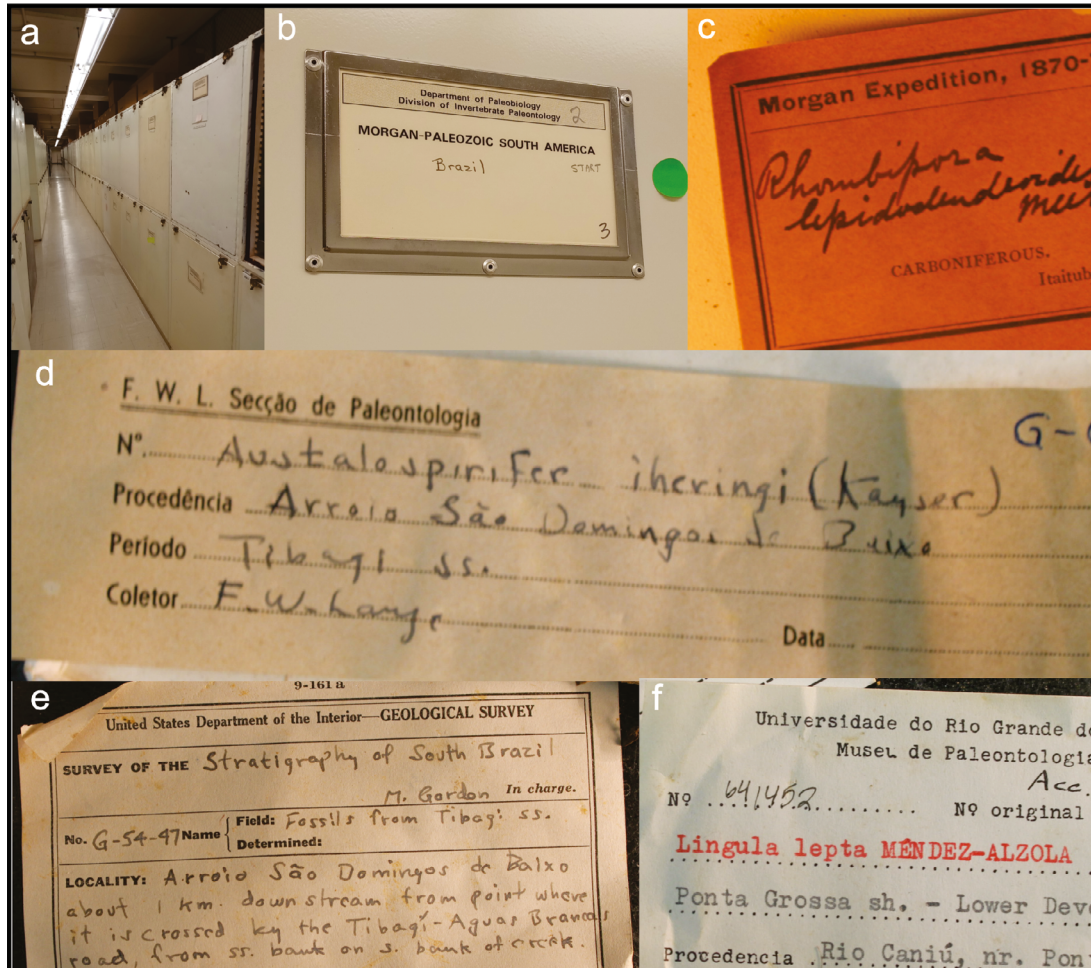 a
b
Department of Paleobiology
Division of Invertebrate Paleontology
2
MORGAN-PALEOZOIC SOUTH AMERICA
Brazil
START
3
c
Morgan Expedition, 1870-
Rhombipora
lepidodendroides
Meek
CARBONIFEROUS.
Itaitub
d
F. W. L. Secção de Paleontologia
G-
Nº Australospirifer iheringi (Kayser)
Procedência Arroio São Domingos de Baixo
Período Tibagi ss.
Coletor F. W. Lange
Data
e
9-161 a
United States Department of the Interior—GEOLOGICAL SURVEY
SURVEY OF THE Stratigraphy of South Brazil
M. Gordon In charge.
No. G-54-47 Name Field: Fossils from Tibagi ss.
Determined:
LOCALITY: Arroio São Domingos de Baixo
about 1 km. down stream from point where
it is crossed by the Tibagi-Aguas Brancas
road, from ss. bank on s. bank of creek.
f
Universidade do Rio Grande do
Museu de Paleontologia
Acc.
Nº 641452 Nº original
Lingula lepta MÉNDEZ-ALZOLA
Ponta Grossa sh. - Lower Devo
Procedencia Rio Caniú, nr. Pon